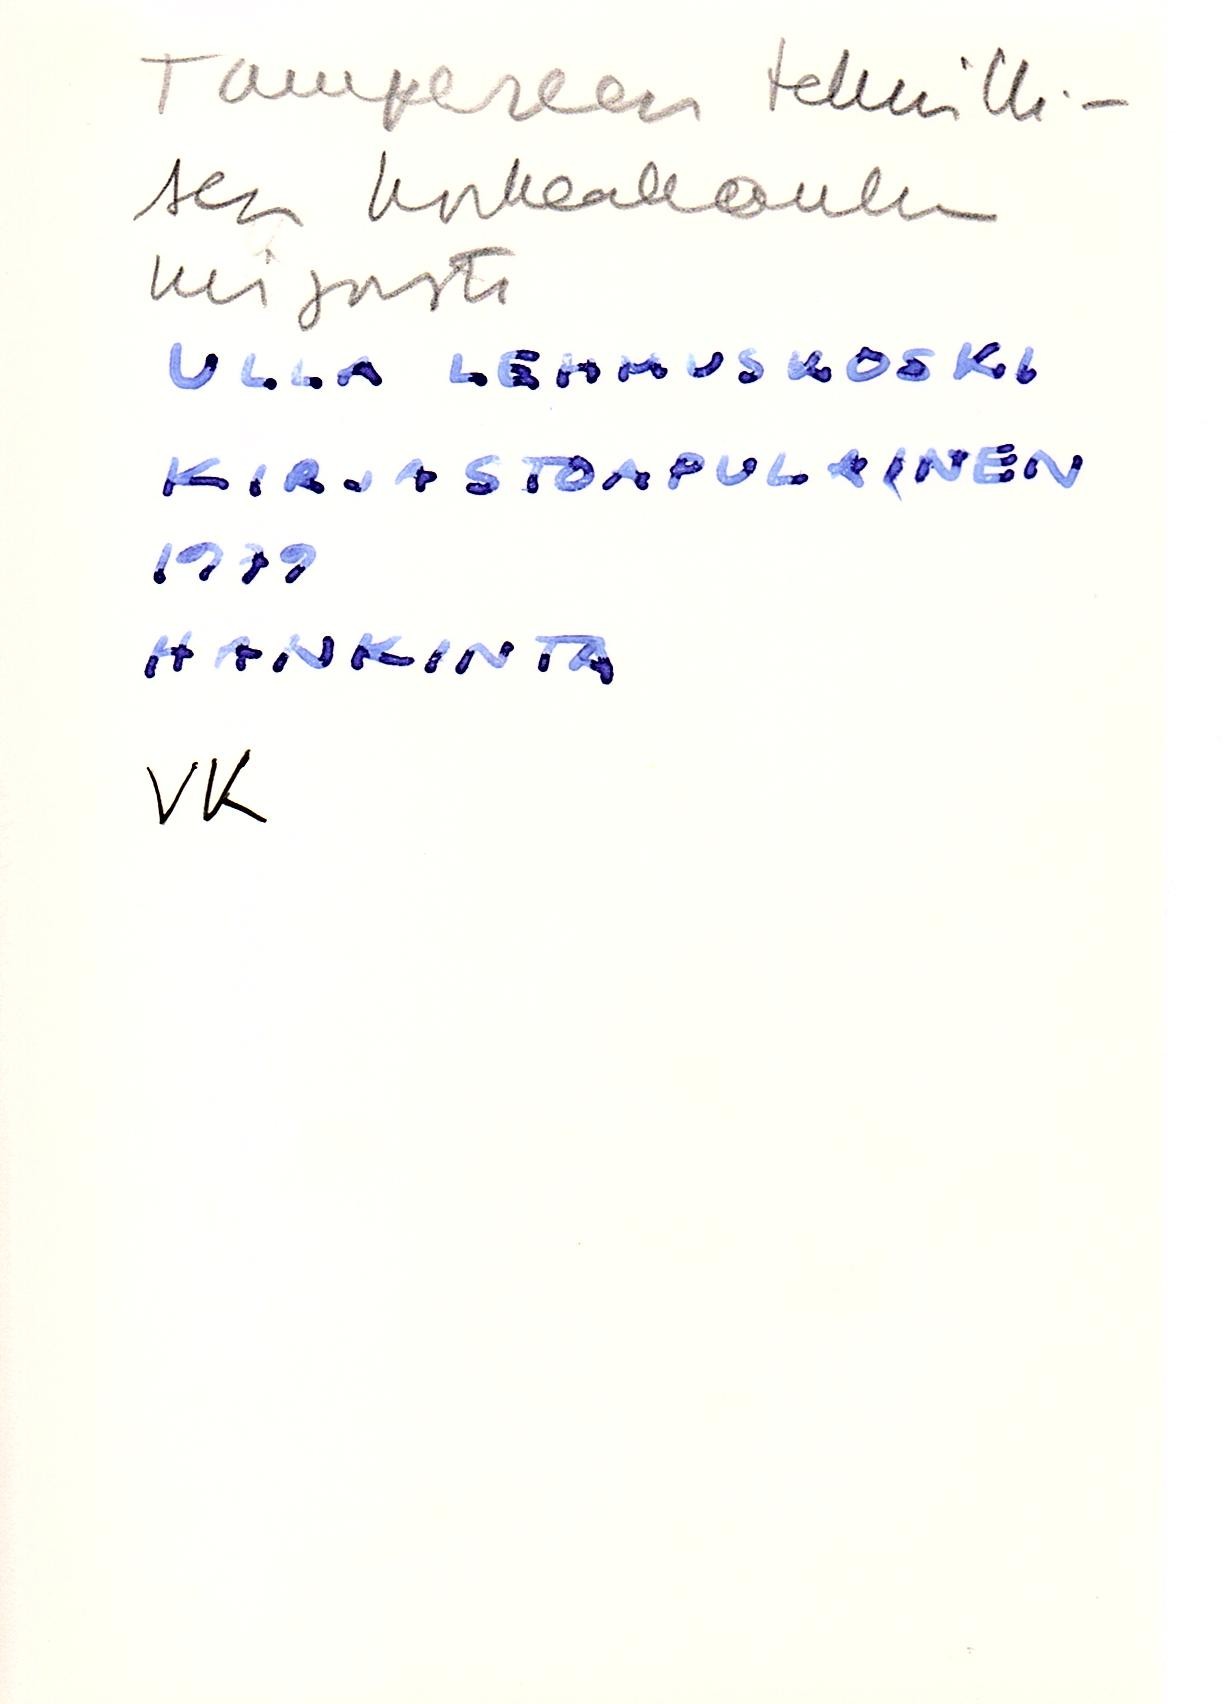 Tampereen teknilli-
sen korkeakoulun
kirjasto
ULLA LEHMUSKOSKI
KIRJASTOAPULAINEN
1979
HANKINTA
VK